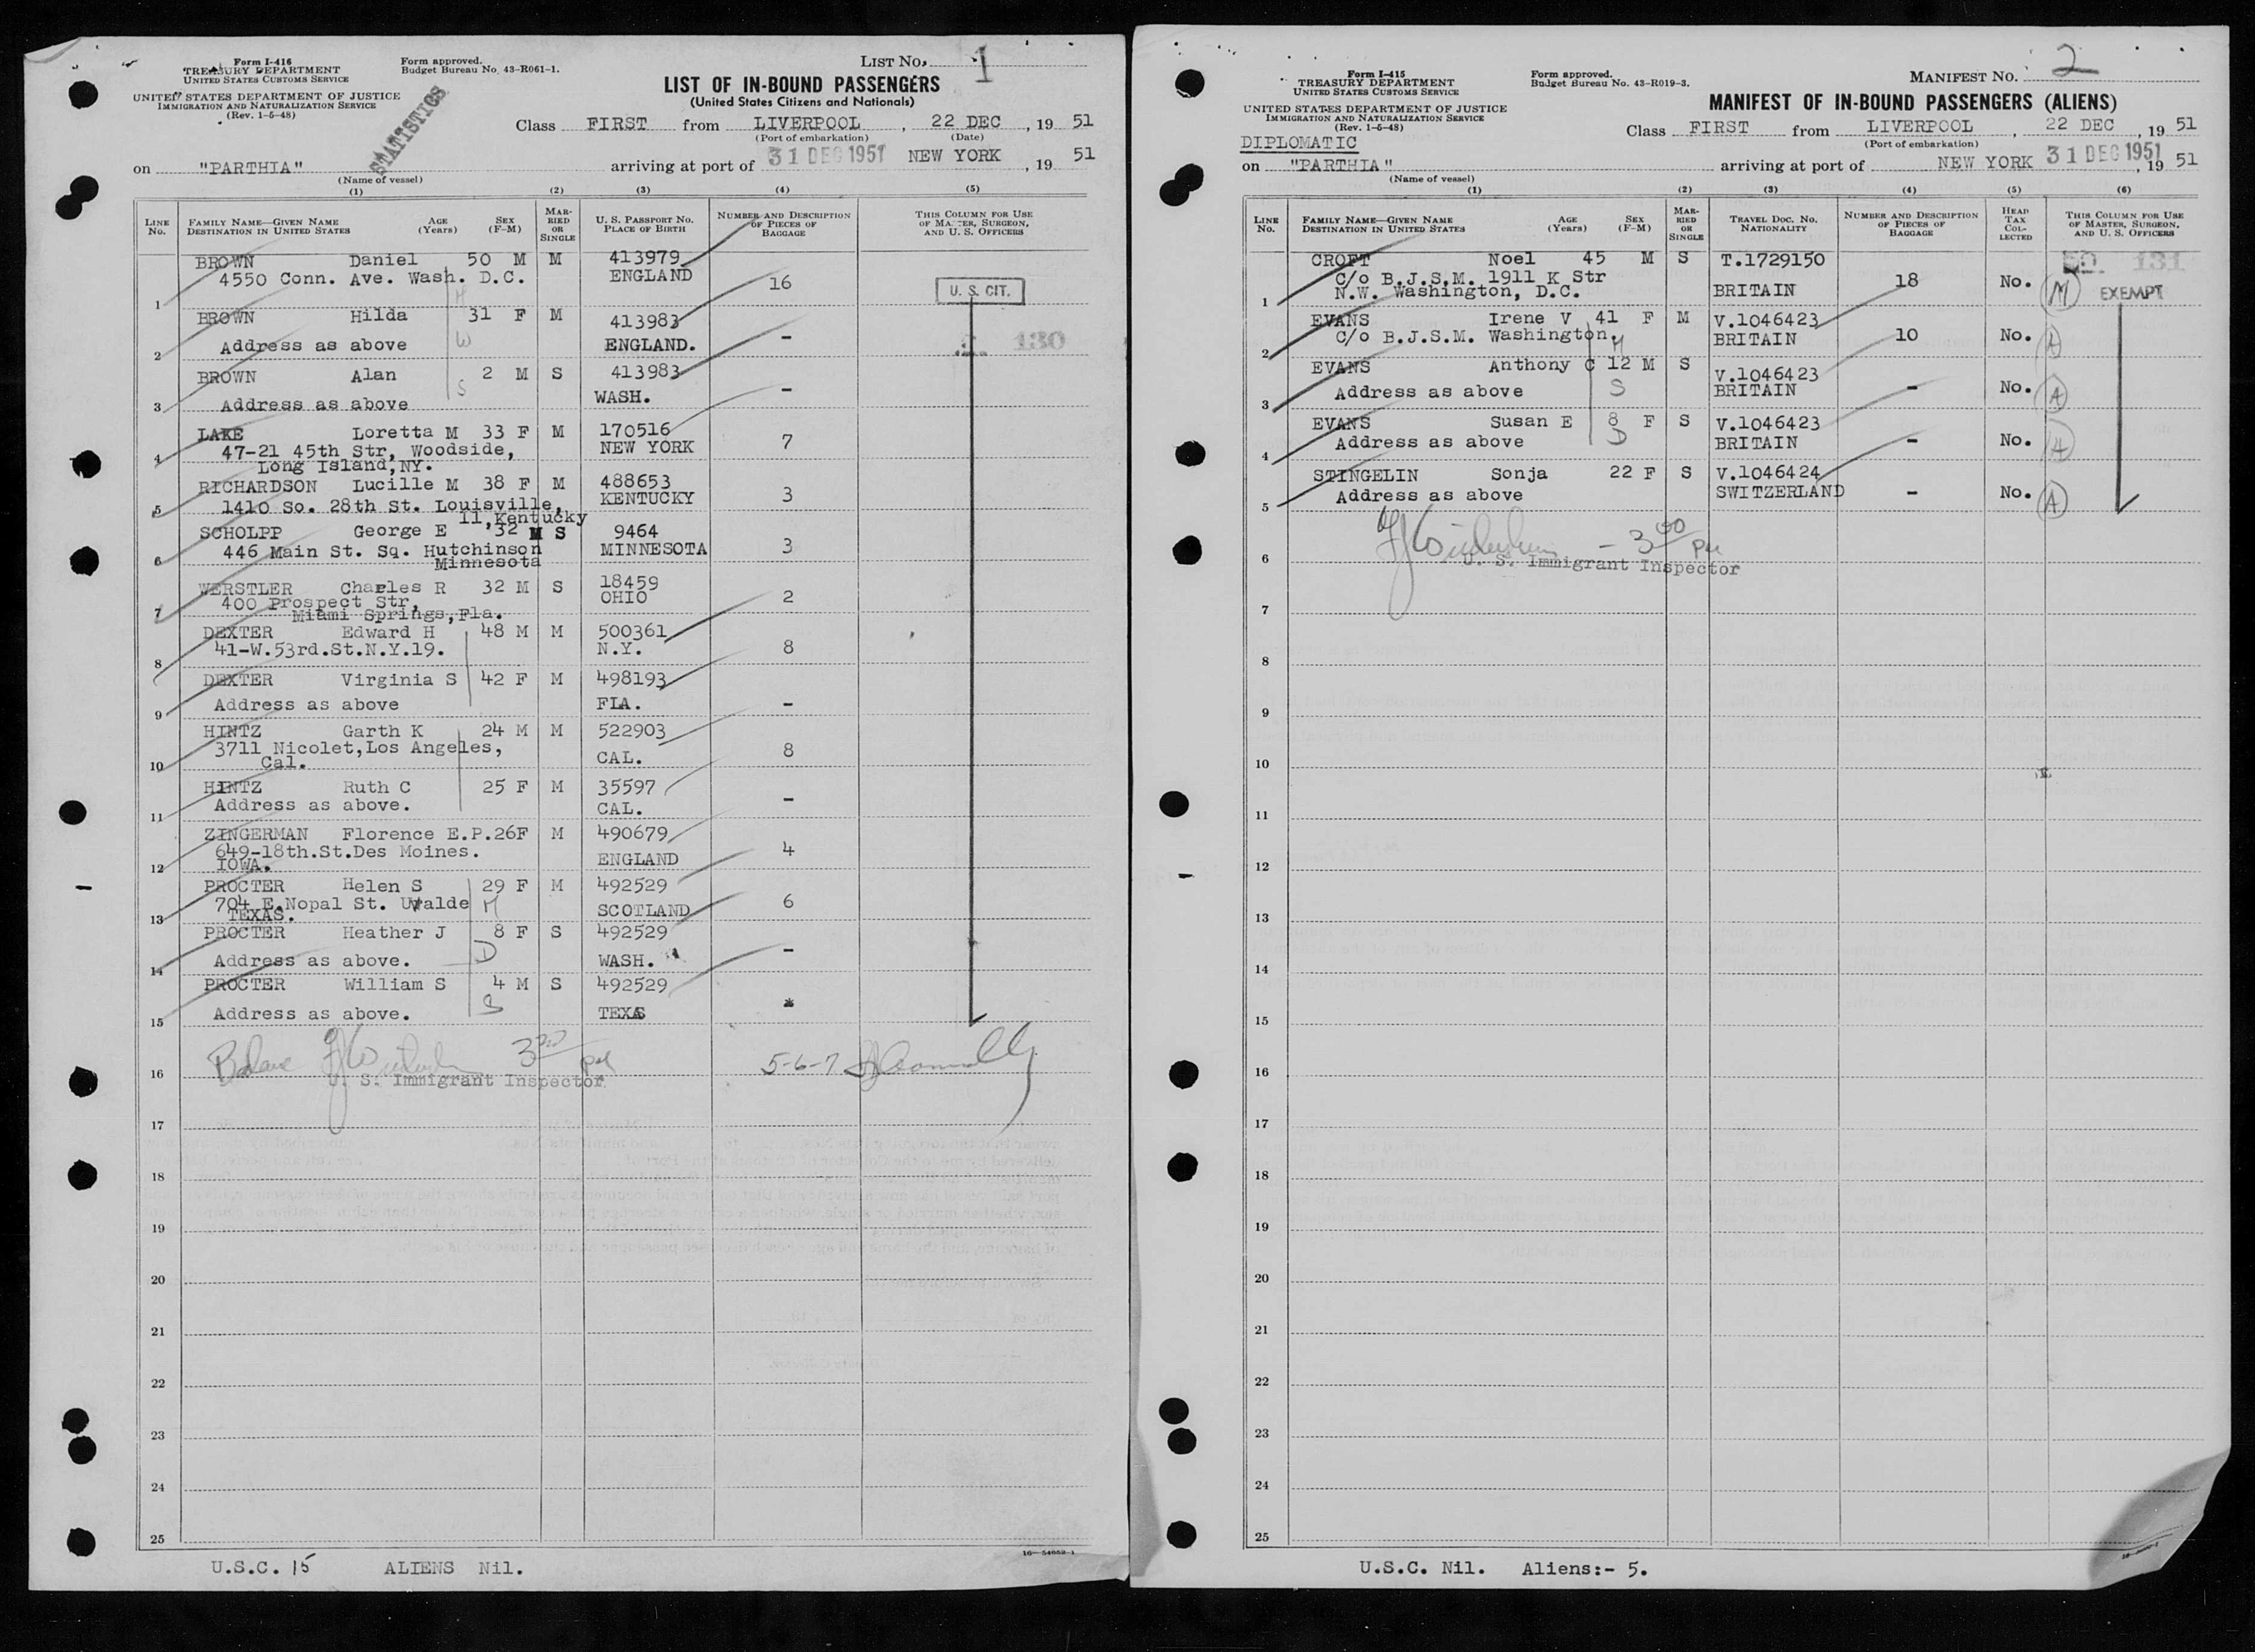 Form I-416
TREASURY DEPARTMENT
UNITED STATES CUSTOMS SERVICE
UNITED STATES DEPARTMENT OF JUSTICE
IMMIGRATION AND NATURALIZATION SERVICE
(Rev. 1-5-48)
Form approved.
Budget Bureau No. 43-R061-1.
STATISTICS
LIST No. 1
LIST OF IN-BOUND PASSENGERS
(United States Citizens and Nationals)
Class FIRST from LIVERPOOL, 22 DEC, 19 51
(Port of embarkation) (Date)
on "PARTHIA" arriving at port of 31 DEC 1951 NEW YORK, 19 51
(Name of vessel)
(1) (2) (3) (4) (5)
LINE No. FAMILY NAME—GIVEN NAME DESTINATION IN UNITED STATES AGE (Years) SEX (F-M) MARRIED OR SINGLE U. S. PASSPORT NO. PLACE OF BIRTH NUMBER AND DESCRIPTION OF PIECES OF BAGGAGE THIS COLUMN FOR USE OF MASTER, SURGEON, AND U. S. OFFICERS
BROWN Daniel 50 M M 413979
4550 Conn. Ave. Wash. D.C. ENGLAND 16
1 U. S. CIT.
BROWN Hilda 31 F M 413983
2 Address as above W ENGLAND. - 130
BROWN Alan 2 M S 413983
3 Address as above S WASH. -
LAKE Loretta M 33 F M 170516
4 47-21 45th Str, Woodside, NEW YORK 7
Long Island,NY.
RICHARDSON Lucille M 38 F M 488653
5 1410 So. 28th St. Louisville, KENTUCKY 3
11,Kentucky
SCHOLPP George E 32 M S 9464
6 446 Main St. Sq. Hutchinson MINNESOTA 3
Minnesota
WERSTLER Charles R 32 M S 18459
7 400 Prospect Str, OHIO 2
Miami Springs,Fla.
DEXTER Edward H 48 M M 500361
8 41-W.53rd.St.N.Y.19. N.Y. 8
DEXTER Virginia S 42 F M 498193
9 Address as above FLA. -
HINTZ Garth K 24 M M 522903
10 3711 Nicolet,Los Angeles, CAL. 8
Cal.
HINTZ Ruth C 25 F M 35597
11 Address as above. CAL. -
ZINGERMAN Florence E.P.26F M 490679
12 649-18th.St.Des Moines. ENGLAND 4
IOWA.
PROCTER Helen S 29 F M 492529
13 704 E.Nopal St. Uvalde M SCOTLAND 6
TEXAS.
PROCTER Heather J 8 F S 492529
14 Address as above. D WASH. -
PROCTER William S 4 M S 492529
15 Address as above. S TEXAS *
16 3 00 pm 5-6-7
U. S. Immigrant Inspector
17
18
19
20
21
22
23
24
25
16—54652-1
U.S.C. 15 ALIENS Nil.
Form I-415
TREASURY DEPARTMENT
UNITED STATES CUSTOMS SERVICE
UNITED STATES DEPARTMENT OF JUSTICE
IMMIGRATION AND NATURALIZATION SERVICE
(Rev. 1-5-48)
DIPLOMATIC
Form approved.
Budget Bureau No. 43-R019-3.
MANIFEST No. 2
MANIFEST OF IN-BOUND PASSENGERS (ALIENS)
Class FIRST from LIVERPOOL, 22 DEC, 19 51
(Port of embarkation)
on "PARTHIA" arriving at port of NEW YORK 31 DEC 1951, 19 51
(Name of vessel)
(1) (2) (3) (4) (5) (6)
LINE No. FAMILY NAME—GIVEN NAME DESTINATION IN UNITED STATES AGE (Years) SEX (F-M) MARRIED OR SINGLE TRAVEL DOC. NO. NATIONALITY NUMBER AND DESCRIPTION OF PIECES OF BAGGAGE HEAD TAX COLLECTED THIS COLUMN FOR USE OF MASTER, SURGEON, AND U. S. OFFICERS
CROFT Noel 45 M S T.1729150 131
1 C/o B.J.S.M. 1911 K Str BRITAIN 18 No. M EXEMPT
N.W. Washington, D.C.
EVANS Irene V 41 F M V.1046423
2 C/o B.J.S.M. Washington, M BRITAIN 10 No. A
EVANS Anthony C 12 M S V.1046423
3 Address as above S BRITAIN - No. A
EVANS Susan E 8 F S V.1046423
4 Address as above D BRITAIN - No. A
STINGELIN Sonja 22 F S V.1046424
5 Address as above SWITZERLAND - No. A
6 - 3 00 pm
U. S. Immigrant Inspector
7
8
9
10
11
12
13
14
15
16
17
18
19
20
21
22
23
24
25
U.S.C. Nil. Aliens:- 5.